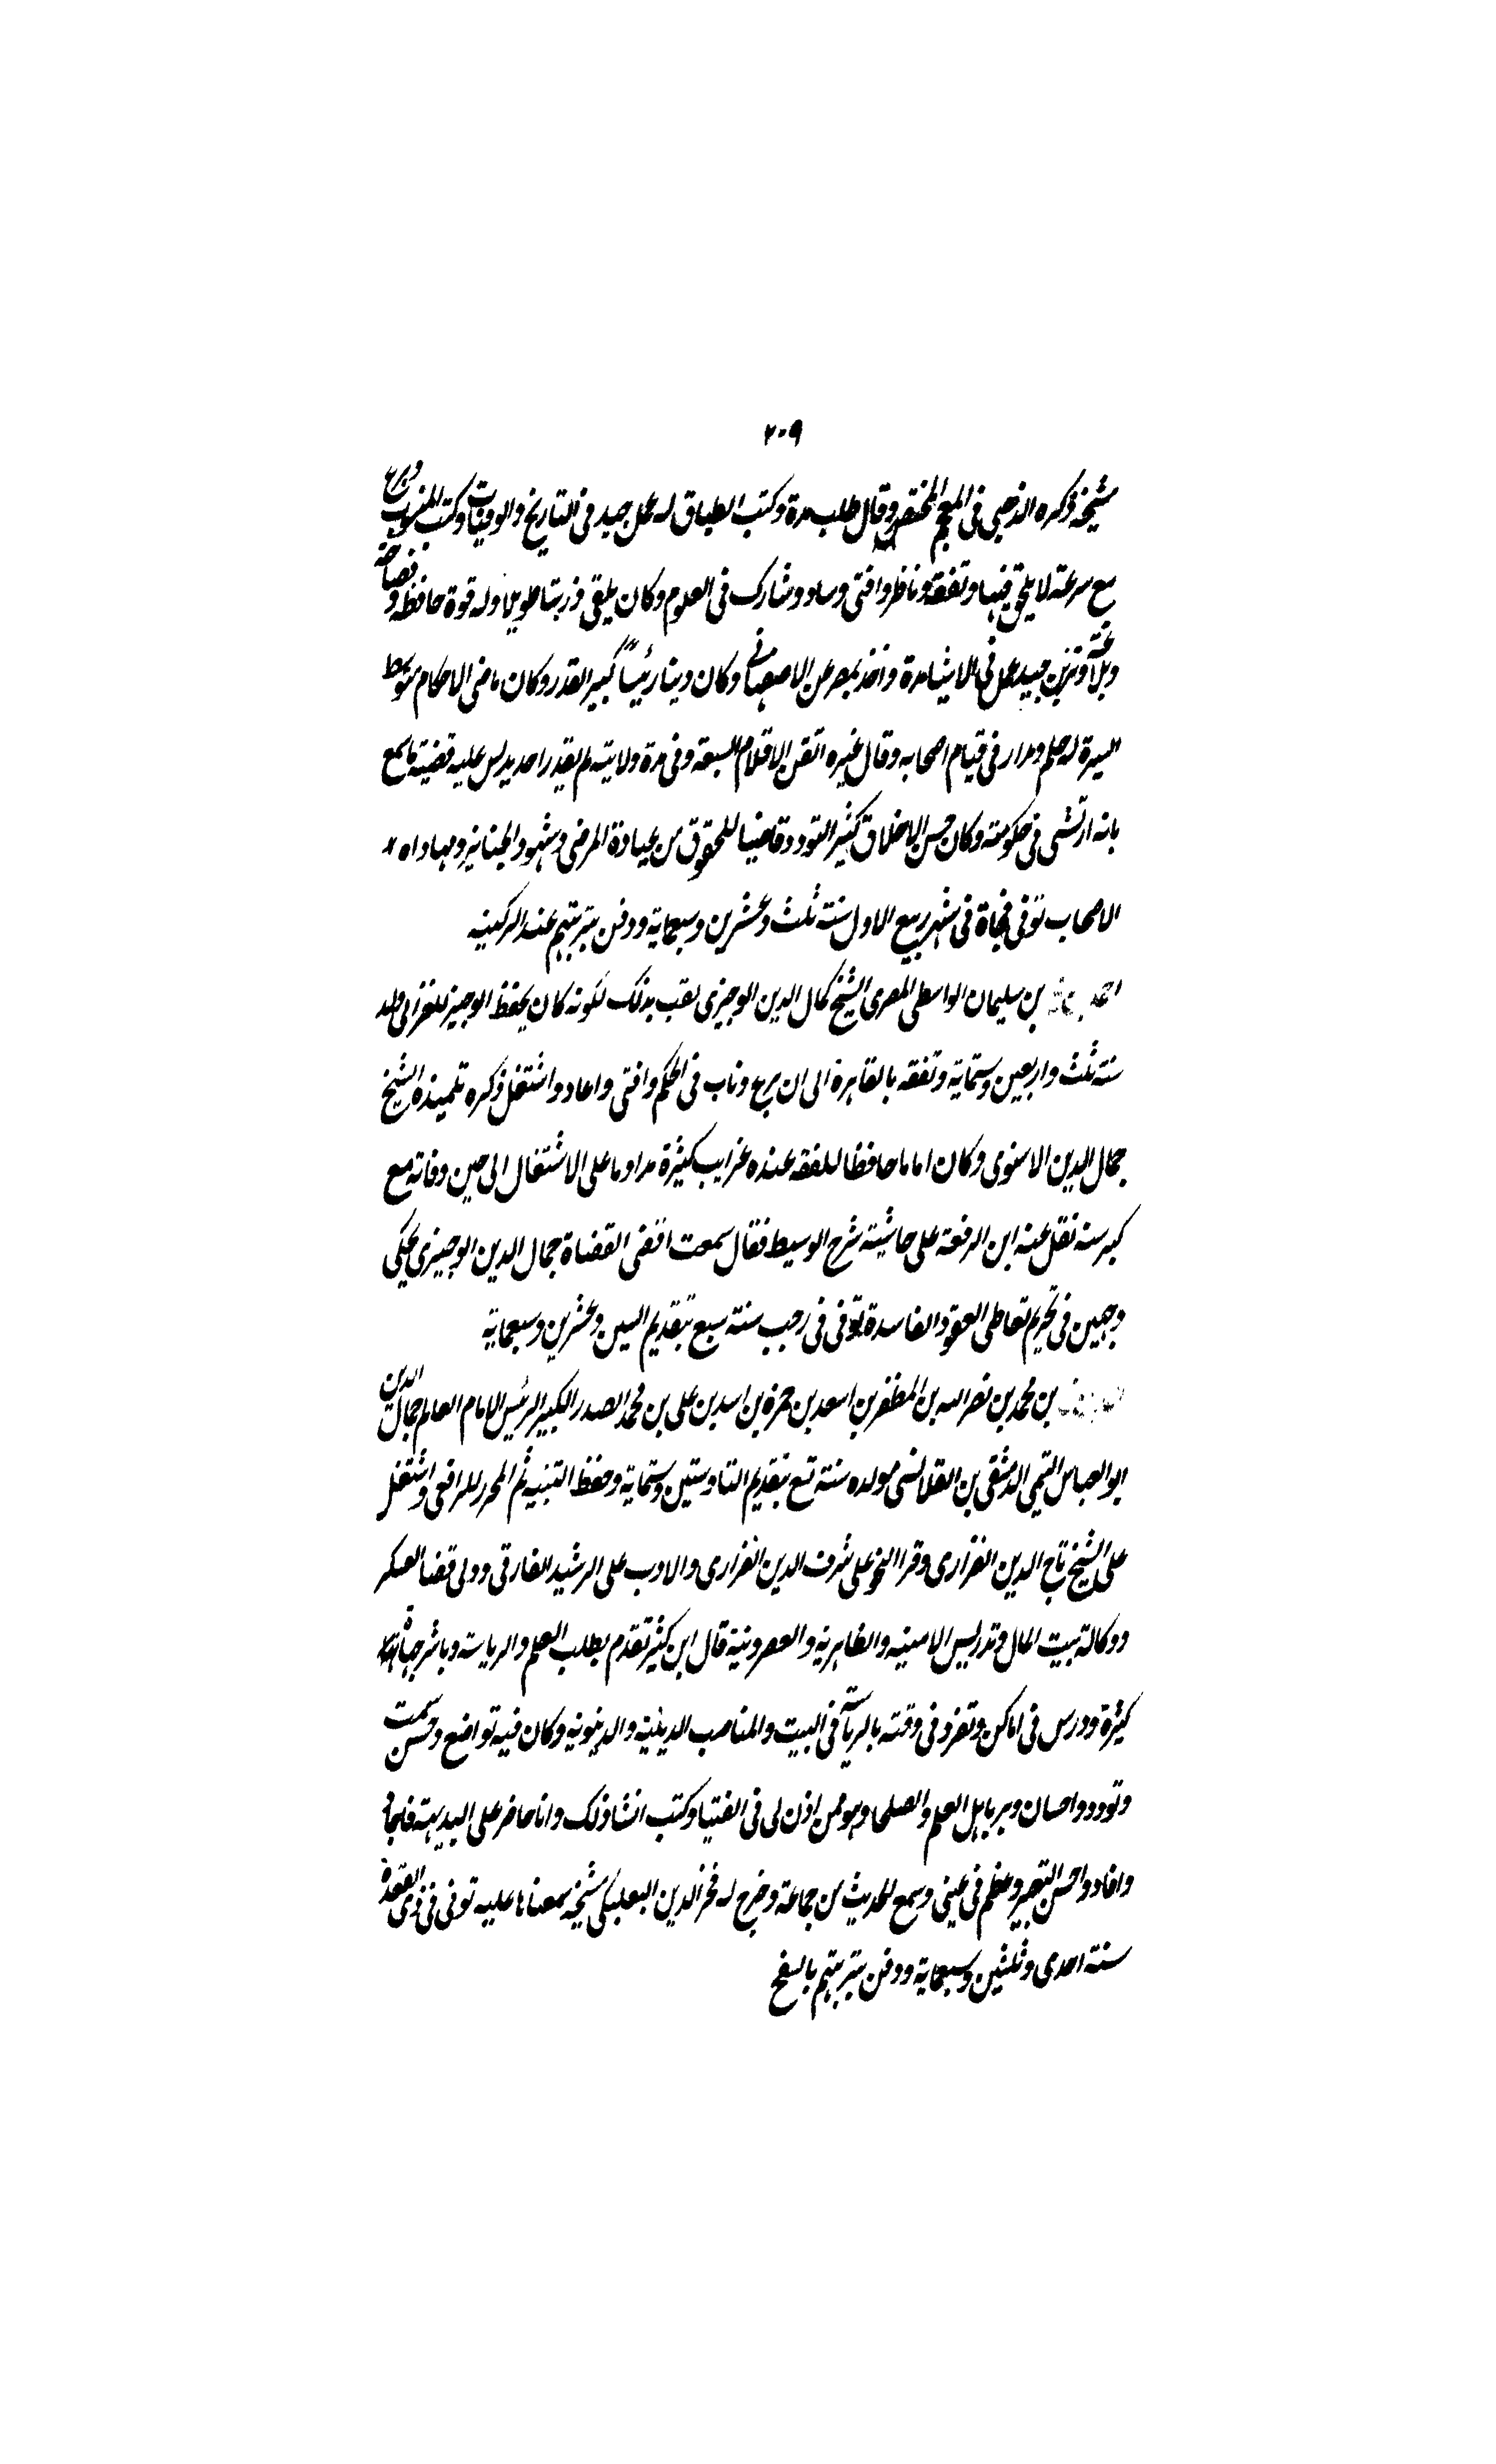 ٢٠٩
مشيخة ذكره الذهبي في المعجم المختص وقال طلب مدة وكتب الطباق له عمل جيد في التاريخ والوفيات وكتب المنسوب وبرع
مع سرعة لا يلحق فيها وتفقه وناظر وافتى وساد وشارك في العلوم وكان يلقي دربتا طويلا وله قوة حافظة وفصاحة
وبلاغة وترتن جيد عمل في الانشا مدة واخذ بمصر عن الاصبهاني وكان دينا رئيسا كبير القدر وكان ماضي الاحكام متوسط
السيرة له حلم ومدار في قيام اصحابه وقال غيره اتقن الاقلام السبعة وفي مدة ولايته لم يقدر احد يدلس عليه قضية ما سمع
بانه ارتشى في حكومته وكان حسن الاخلاق كثير التودد قاضيا للحقوق من عيادة المرضى وشهود الجنايز ومهاداه
الاصحاب توفي فجاة في شهر ربيع الاول سنة ثلث وعشرين وسبعماية ودفن بتربتهم عند الركنيه
احمد بن سليمان الواسطي المصري الشيخ كمال الدين الوجيزي لقب بذلك لكونه كان يحفظ الوجيز للغزالي ولد
سنة ثلث واربعين وستماية وتفقه بالقاهرة الى ان برع وناب في الحكم وافتى واعاد واشتغل ذكره تلميذه الشيخ
جمال الدين الاسنوي وكان اماما حافظا للفقه عنده غرايب كثيرة مداوما على الاشتغال الى حين وفاته مع
كبر سنه نقل عنه ابن الرفعة على حاشية شرح الوسيط فقال سمعت اقضى القضاة جمال الدين الوجيزي يحكي
وجهين في تحريم تعاطي العقود الفاسدة توفي في رجب سنة سبع بتقديم السين وعشرين وسبعماية
بن محمد بن نصر الله بن المظفر بن اسعد بن حمزة بن اسد بن علي بن محمد الصدر الكبير الرئيس الامام العالم جمال الدين
ابو العباس التميمي الدمشقي بن القلانسي مولده سنة تسع بتقديم التا وستين وستماية وحفظ التنبيه ثم المحرر للرافعي واشتغل
على الشيخ تاج الدين الفزاري وقرا النحو على شرف الدين الفزاري والادب على الرشيد الفارقي وولي قضا العسكر
ووكالة بيت المال وتدريس الامينيه والظاهريه والعصرونية قال ابن كثير تقدم بطلب العلم والرياسة وباشر جهات
كثيرة ودرس في اماكن وتفرد في وقته بالرياسة في البيت والمناصب الدينية والدنيويه وكان فيه تواضع وحسن سمت
وتودد واحسان وبر باهل العلم والصلحا وهو ممن اذن لي في الفتيا وكتب انشا ذلك وانا حاضر على البديهة فاجاد
وافاد واحسن التعبير وعظم في عيني وسمع الحديث من جماعة وخرج له فخر الدين البعلبكي مشيخة سمعناها عليه توفي في ذي القعدة
سنة احدى وثلثين وسبعماية ودفن بتربتهم بالسفح